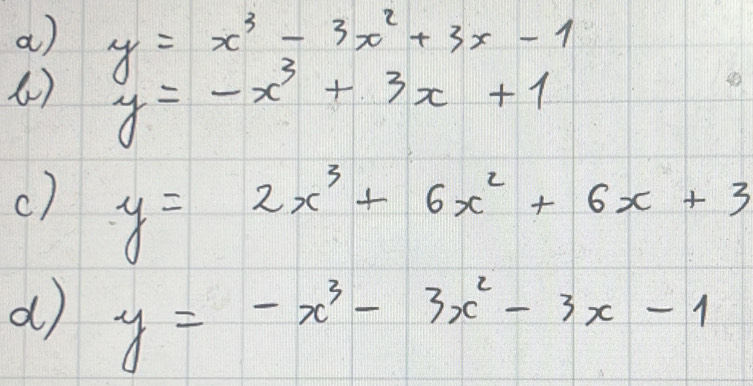 a) y = x³ - 3x² + 3x - 1
b) y = -x³ + 3x + 1
c) y = 2x³ + 6x² + 6x + 3
d) y = -x³ - 3x² - 3x - 1